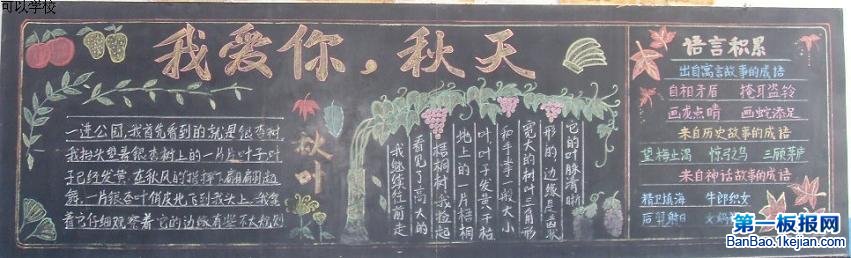 可以学校
我爱你，秋天
秋叶
一进公园，我首先看到的就是银杏树
我抬头望着银杏树上的一片片叶子，叶
子已经发黄，在秋风的指挥下翩翩起
舞，一片银杏叶俏皮地飞到我头上，我拿
着它仔细观察着它的边缘有些不大规则
我继续往前走
看见了高大的
梧桐树，我捡起
地上的一片梧桐
叶，叶子发黄，干枯
和手掌一般大小
宽大的树叶三角形
形的，边缘是
它的叶脉清晰
语言积累
出自寓言故事的成语
自相矛盾 掩耳盗铃
画龙点睛 画蛇添足
来自历史故事的成语
望梅止渴 惊弓之鸟 三顾茅庐
来自神话故事的成语
精卫填海 牛郎织女
后羿射日 女娲
第一板报网
BanBao.1kejian.com